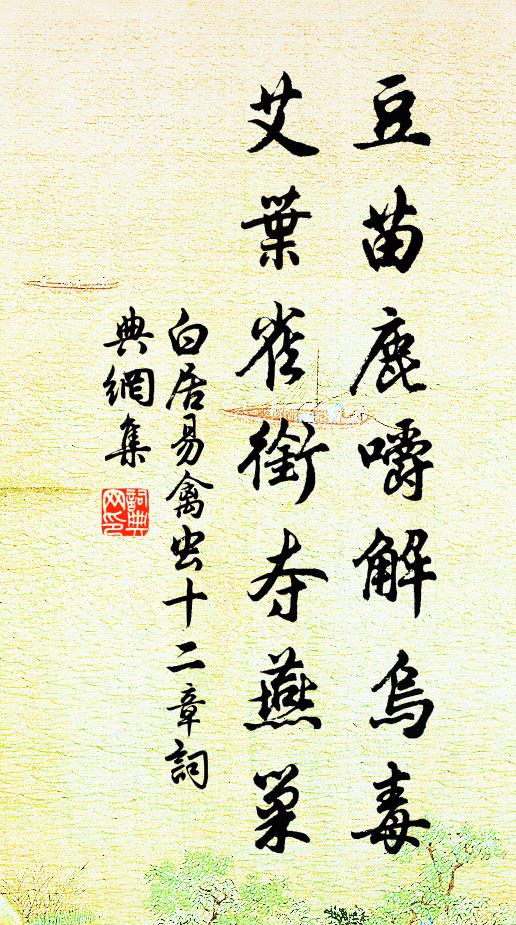 豆苗鹿嚼解烏毒
艾葉雀銜夺燕巢
白居易禽虫十二章詞
典網集
詞典
网印